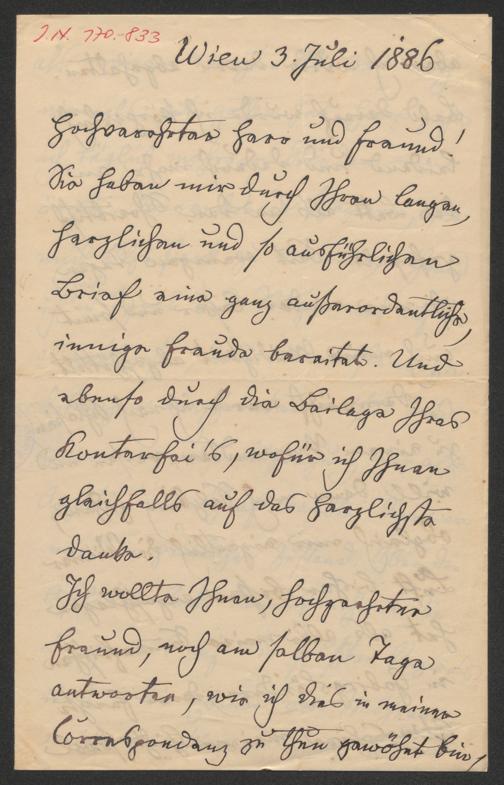 J.N. 170.-833
Wien 3. Juli 1886
Hochverehrter Herr und Freund!
Sie haben mir durch Ihren langen,
herzlichen und so ausführlichen
Brief eine ganz außerordentliche,
innige Freude bereitet. Und
ebenso durch die Beilage Ihres
Konterfei's, wofür ich Ihnen
gleichfalls auf das herzlichste
danke.
Ich wollte Ihnen, hochgeehrter
Freund, noch am selben Tage
antworten, wie ich dies in meiner
Correspondenz zu thun gewöhnt bin,